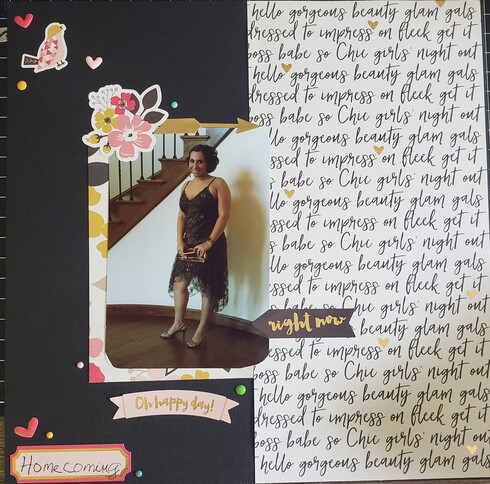 hello gorgeous beauty glam gals
dressed to impress on fleek get it
boss babe so Chic girls' night out
hello gorgeous beauty glam gals
dressed to impress on fleek get it
boss babe so Chic girls' night out
llo gorgeous beauty glam gals
ssed to impress on fleek get it
s babe so Chic girls' night out
lo gorgeous beauty glam gals
ssed to impress on fleek get it
s babe so Chic girls' night out
llo gorgeous beauty glam gals
ssed to impress on fleek get it
s babe so Chic girls' night out
right now
beauty glam gals
essed to impress on fleek get it
boss babe so Chic girls' night out
hello gorgeous beauty glam gals
Oh happy day!
dressed to impress on fleek get it
boss babe so Chic girls' night out
hello gorgeous beauty glam gals
Homecoming